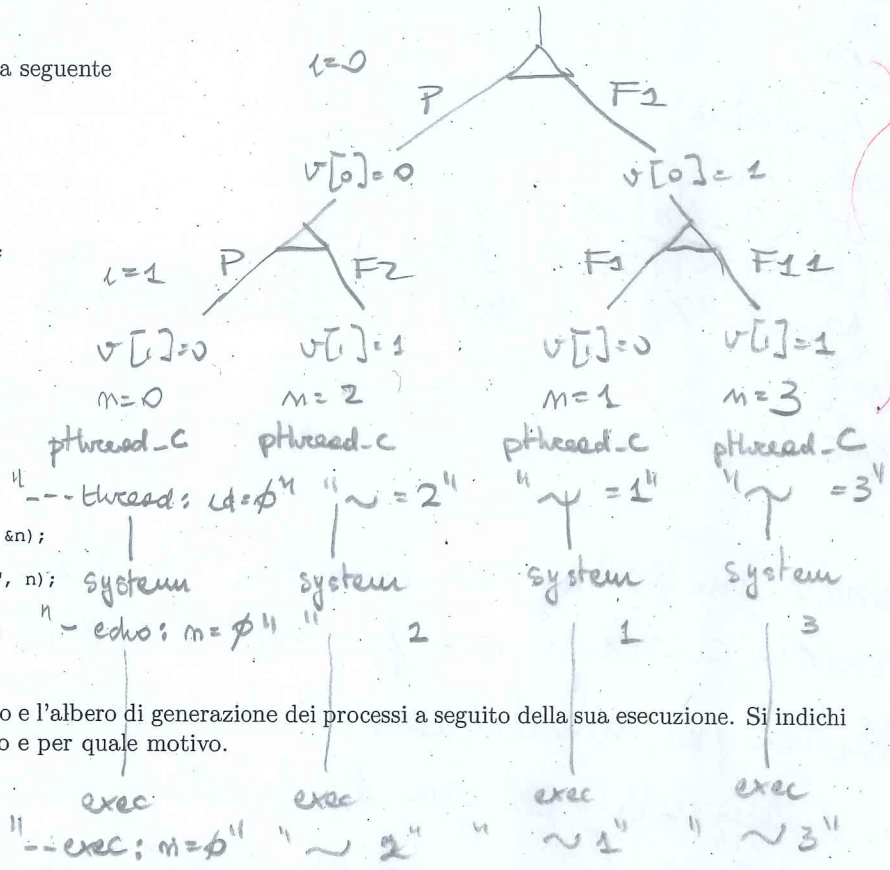 a seguente
i=0
P F1
v[0]=0 v[0]=1
;
i=1 P F2 F1 F11
v[1]=0 v[1]=1 v[1]=0 v[1]=1
n=0 n=2 n=1 n=3
pthread_C pthread_C pthread_C pthread_C
"--- thread: id=ϕ" "~ =2" "~ =1" "~ =3"
&n);
", n); system system system system
"- echo: n=ϕ" " 2 1 3
o e l'albero di generazione dei processi a seguito della sua esecuzione. Si indichi
o e per quale motivo.
exec exec exec exec
"--exec: n=ϕ" "~ 2" "~ 1" "~ 3"